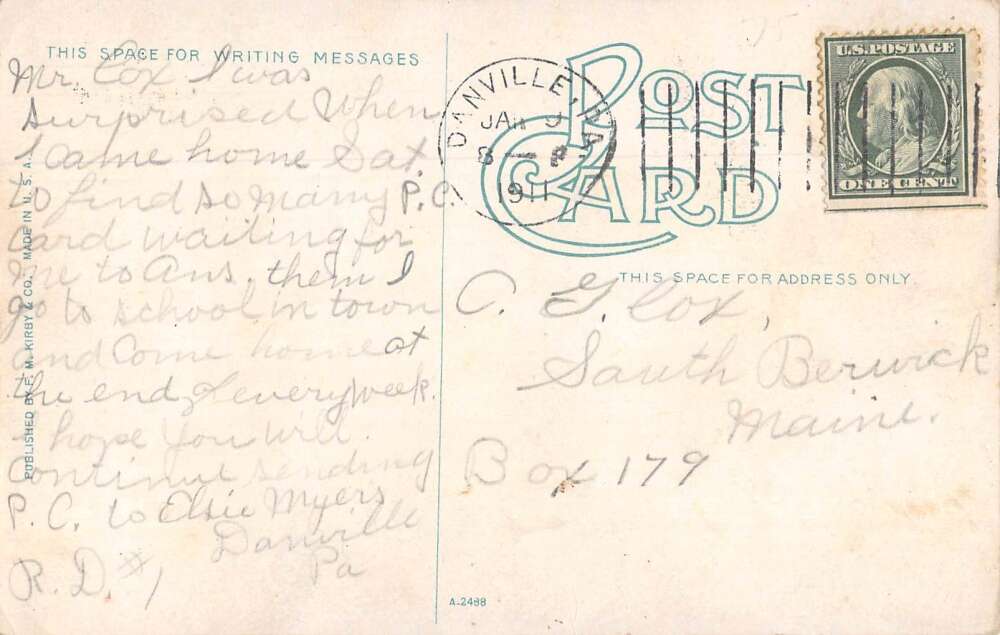 THIS SPACE FOR WRITING MESSAGES
Mr. Cox I was
surprised when
I came home Sat
to find so many P.C.
card waiting for
me to Ans. them I
go to school in town
and come home at
the end of every week.
I hope you will
continue sending
P. C. to Elsie Myers
Danville
Pa
R. D. #1
PUBLISHED BY F. M. KIRBY & CO., MADE IN U. S. A.
POST CARD
DANVILLE, PA.
JAN 9
8 — P
1911
U.S. POSTAGE
ONE CENT
THIS SPACE FOR ADDRESS ONLY.
C. G. Cox,
South Berwick
Maine.
Box 179
A-2488